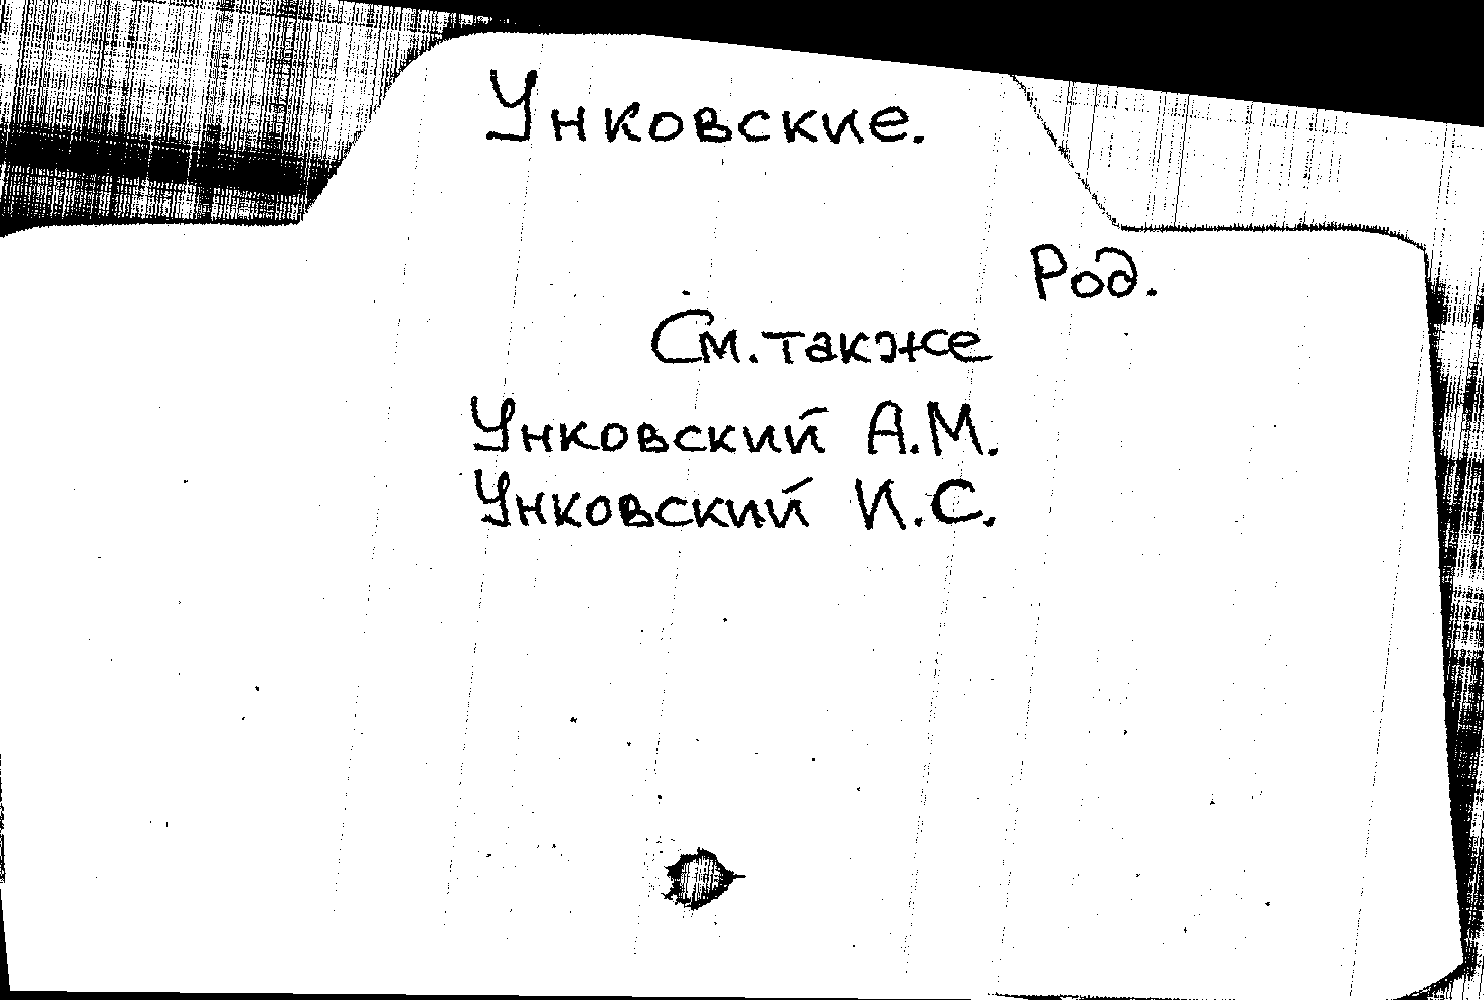 Унковские.
Род.
См. также
Унковский А.М.
Унковский И.С.